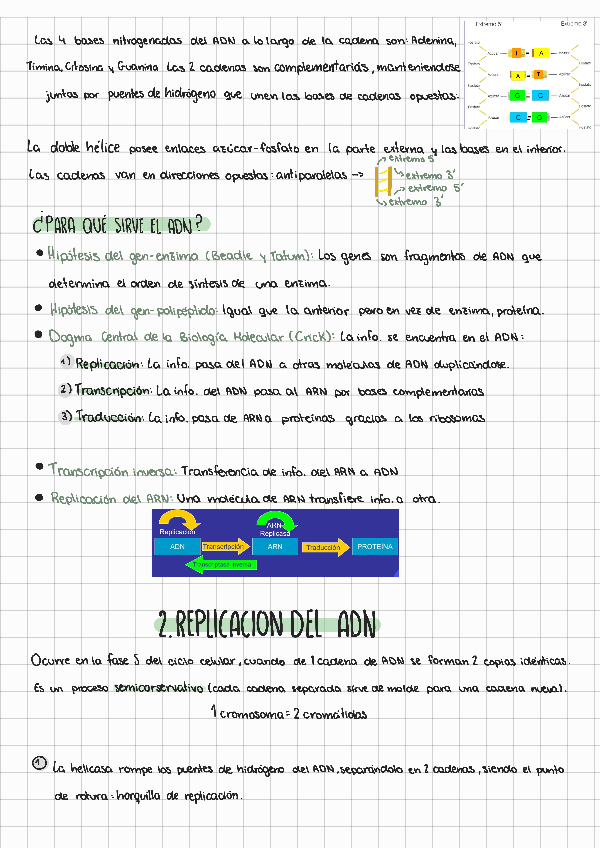 Las 4 bases nitrogenadas del ADN a lo largo de la cadena son: Adenina,
Timina, Citosina y Guanina. Las 2 cadenas son complementarias, manteniendose
juntas por puentes de hidrógeno que unen las bases de cadenas opuestas:
Extremo 5' Extremo 3'
Fosfato
Azúcar T A Azúcar
Fosfato Fosfato
Azúcar A T Azúcar
Fosfato Fosfato
Azúcar G C Azúcar
Fosfato Fosfato
Azúcar C G Azúcar
Fosfato
La doble hélice posee enlaces azúcar-fosfato en la parte externa y las bases en el interior.
Las cadenas van en direcciones opuestas: antiparalelas ->
extremo 5'
extremo 3'
extremo 5'
extremo 3'
¿PARA QUÉ SIRVE EL ADN?
• Hipótesis del gen-enzima (Beadle y Tatum): Los genes son fragmentos de ADN que
determina el orden de síntesis de una enzima.
• Hipótesis del gen-polipéptido: Igual que la anterior pero en vez de enzima, proteína.
• Dogma Central de la Biología Molecular (Crick): La info. se encuentra en el ADN:
1) Replicación: La info. pasa del ADN a otras moléculas de ADN duplicándose.
2) Transcripción: La info. del ADN pasa al ARN por bases complementarias
3) Traducción: La info. pasa de ARN a proteínas gracias a los ribosomas
• Transcripción inversa: Transferencia de info. del ARN a ADN
• Replicación del ARN: Una molécula de ARN transfiere info. a otra.
Replicación ARN-Replicasa
ADN Transcripción ARN Traducción PROTEÍNA
Transcriptasa inversa
2. REPLICACION DEL ADN
Ocurre en la fase S del ciclo celular, cuando de 1 cadena de ADN se forman 2 copias idénticas.
Es un proceso semiconservativo (cada cadena separada sirve de molde para una cadena nueva).
1 cromosoma = 2 cromátidas
1 La helicasa rompe los puentes de hidrógeno del ADN, separándolo en 2 cadenas, siendo el punto
de rotura: horquilla de replicación.